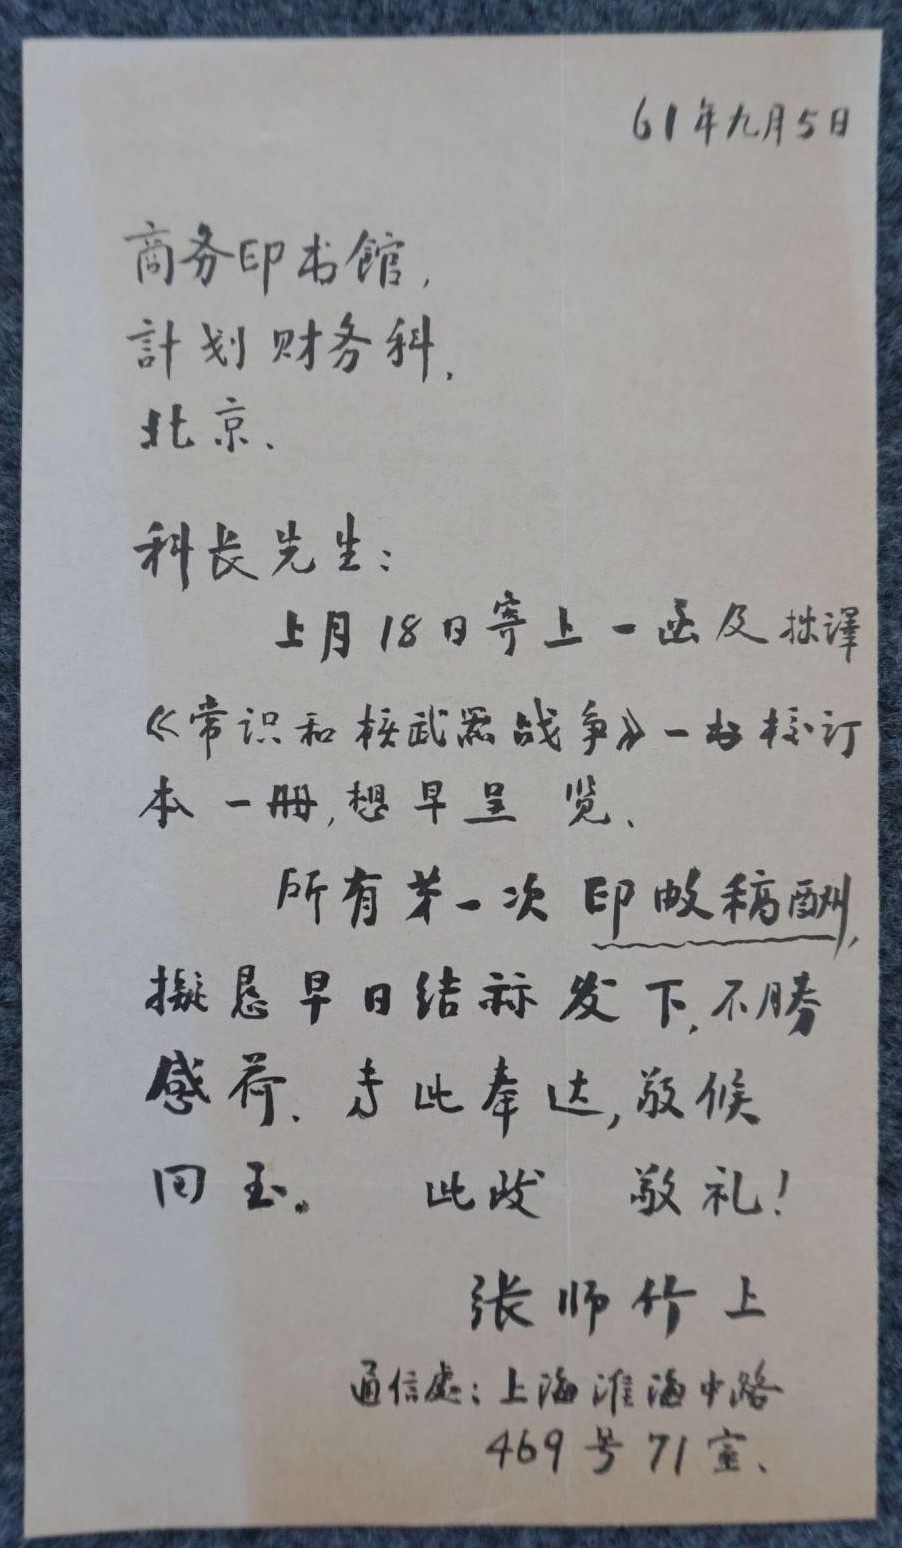 61年九月5日
商务印书館,
計划财务科.
北京、
科长先生:
上月18日寄上一函及拙譯
《常识和核武器战争》一书校订
本一册,想早呈览、
所有第一次印数稿酬,
擬恳早日结祘发下,不勝
感荷、专此奉达,敬候
回玉。 此致 敬礼!
张师竹上
通信處:上海淮海中路
469号71室、